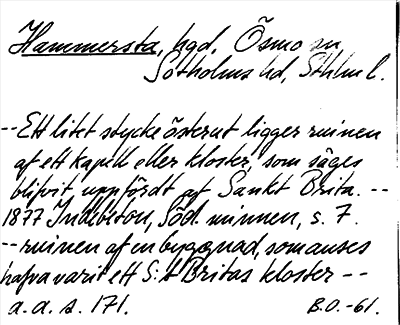 Hammersta, hgd, Ösmo sn,
Sotholms hd, Sthlm l.
--Ett litet stycke österut ligger ruinen
af ett kapell eller kloster, som säges
blifvit uppfördt af Sankt Brita. --
1877 Indebetou, Söd. minnen, s. 7.
--ruinen af en byggnad, som anses
hafva varit ett S:t Britas kloster --
a. a. s. 171.
B.O.-61.